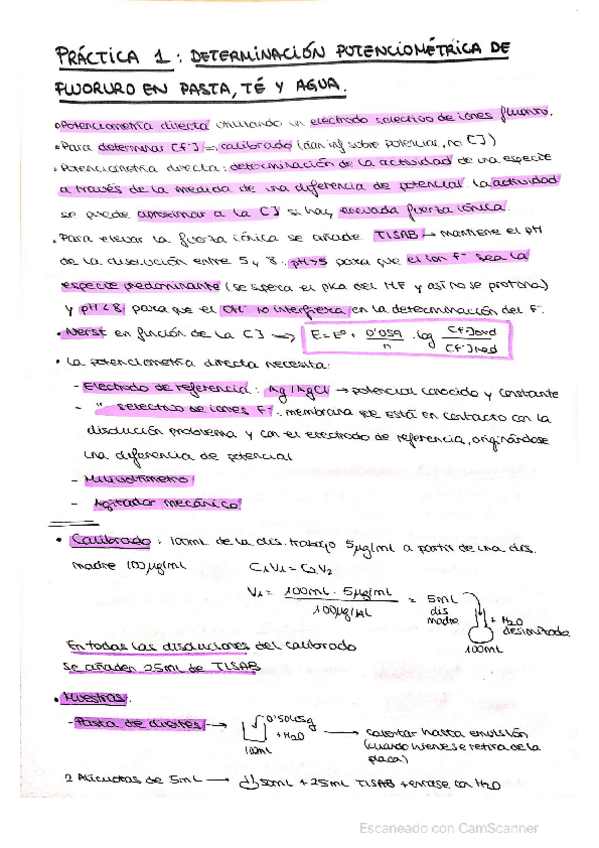 PRÁCTICA 1: DETERMINACIÓN POTENCIOMÉTRICA DE
FLUORURO EN PASTA, TÉ Y AGUA.
• Potenciometría directa utilizando un electrodo selectivo de iones fluoruro.
• Para determinar [F⁻] ⇒ calibrado (dan inf sobre potencial, no [])
• Potenciometría directa: determinación de la actividad de una especie
a través de la medida de una diferencia de potencial. La actividad
se puede aproximar a la [] si hay elevada fuerza iónica.
• Para elevar la fuerza iónica se añade TISAB → mantiene el pH
de la disolución entre 5 y 8. pH>5 para que el ion F⁻ sea la
especie predominante (se supera el pka del HF y así no se protona)
y pH<8 para que el OH⁻ no interfiera en la determinación del F⁻.
• Nerst en función de la [] ⇒ E=Eº + 0'059/n · log [F⁻]oxd/[F⁻]red
• La potenciometría directa necesita:
- Electrodo de referencia: Ag/AgCl → potencial conocido y constante
- " selectivo de iones F⁻: membrana que está en contacto con la
disolución problema y con el electrodo de referencia, originándose
una diferencia de potencial
- Milivoltímetro
- Agitador mecánico
• Calibrado: 100mL de la dis. trabajo 5µg/mL a partir de una dis.
madre 100µg/mL C₁V₁ = C₂V₂
V₁ = 100mL · 5µg/mL / 100µg/mL = 5mL dis madre + H₂O desionizada
100mL
En todas las disoluciones del calibrado
se añaden 25mL de TISAB
• Muestras:
- Pasta de dientes → 0'5045g + H₂O → calentar hasta emulsión
100mL (cuando hierve se retira de la
placa)
2 Alícuotas de 5mL → 50mL + 25mL TISAB + enrase con H₂O
Escaneado con CamScanner